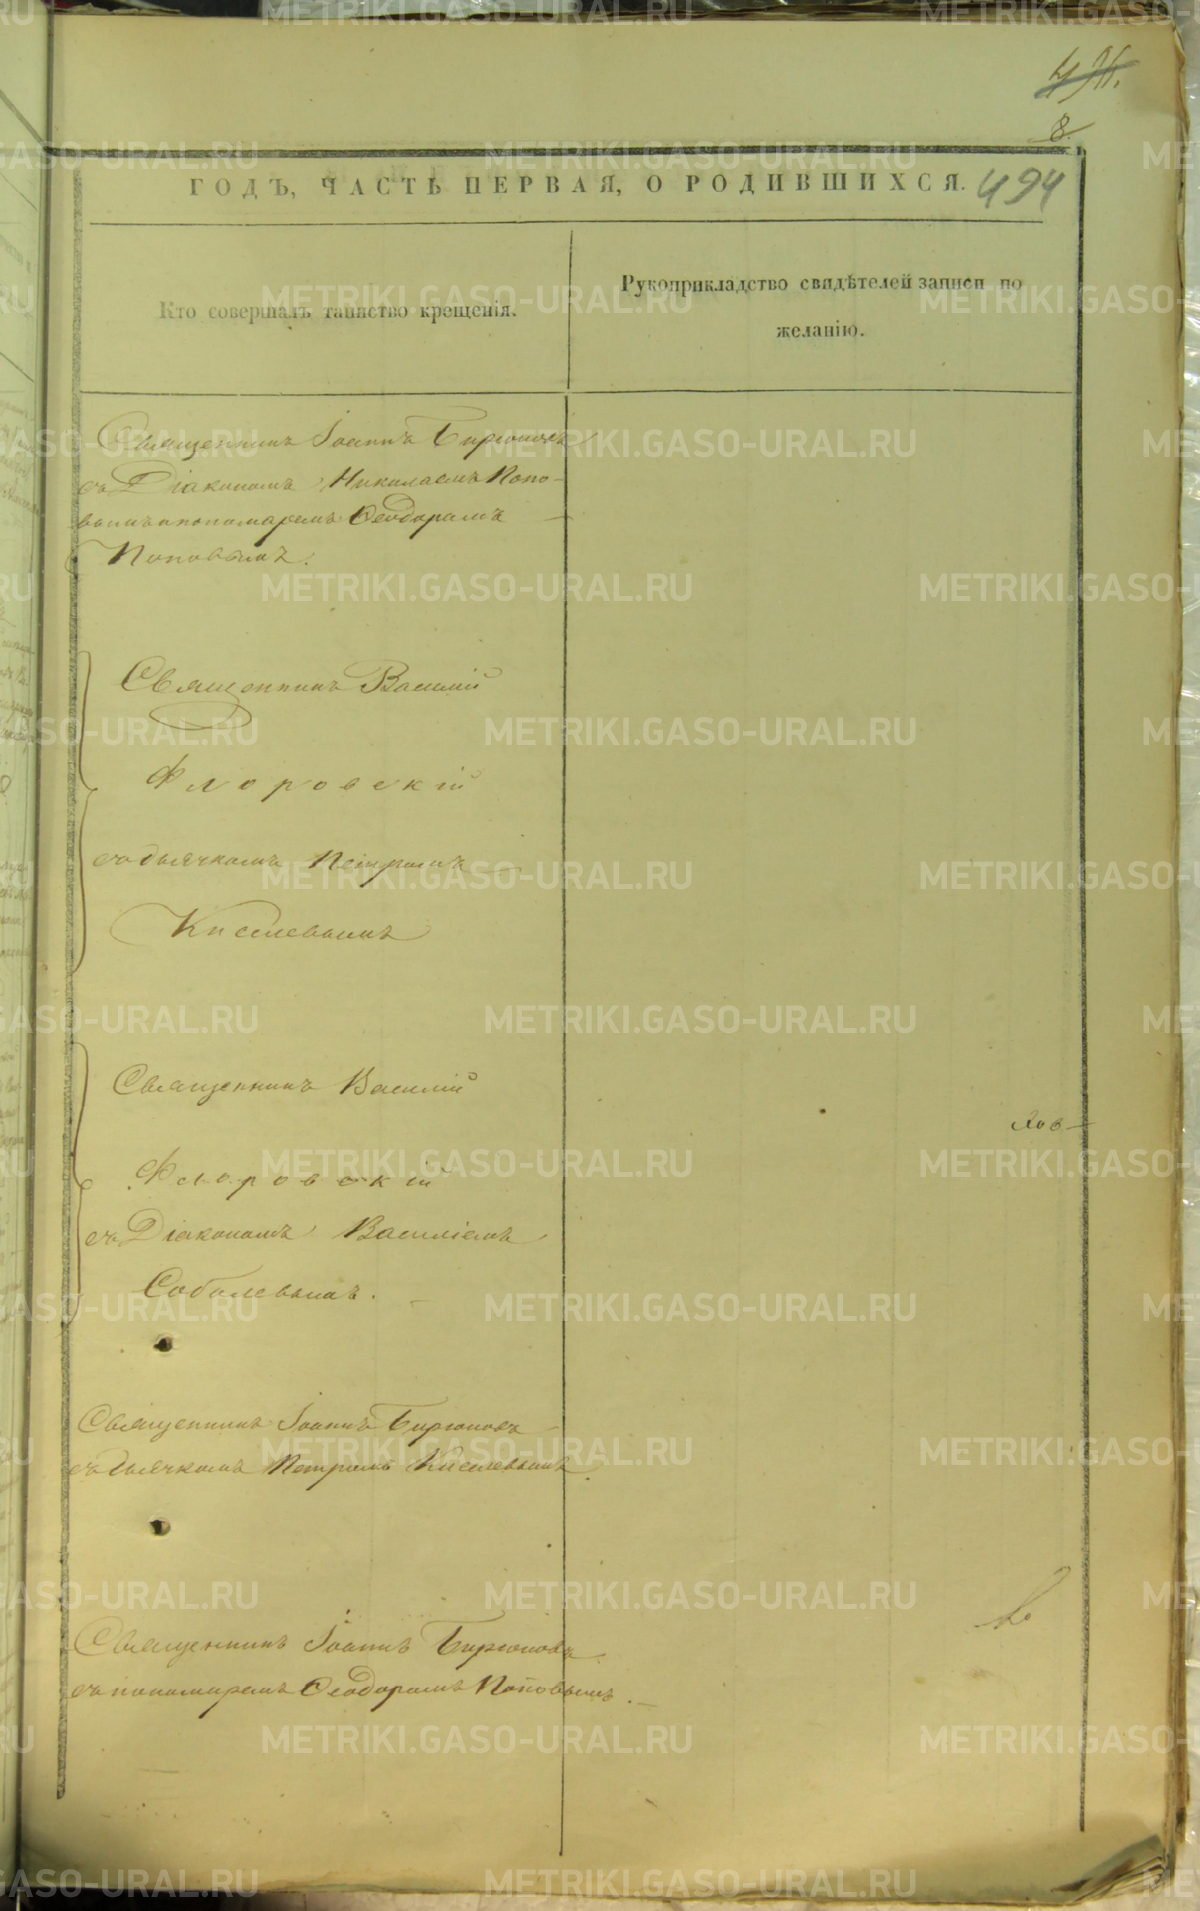 8.
ГОДЪ, ЧАСТЬ ПЕРВАЯ, О РОДИВШИХСЯ.
494
Кто совершалъ таинство крещенія.
Рукоприкладство свидѣтелей записи по
желанію.
Священникъ Іоаннъ Бирюковъ
съ Діакономъ Николаемъ Попо-
вымъ и пономаремъ Ѳеодоромъ
Поповымъ.
Священникъ Василій
Флоровскій
съ дьячкомъ Петромъ
Киселевымъ
Священникъ Василій
Флоровскій
съ Діакономъ Василіемъ
Соболевымъ.
Священникъ Іоаннъ Бирюковъ
съ дьячкомъ Петромъ Киселевымъ.
Священникъ Іоаннъ Бирюковъ
съ пономаремъ Ѳеодоромъ Поповымъ.
METRIKI.GASO-URAL.RU